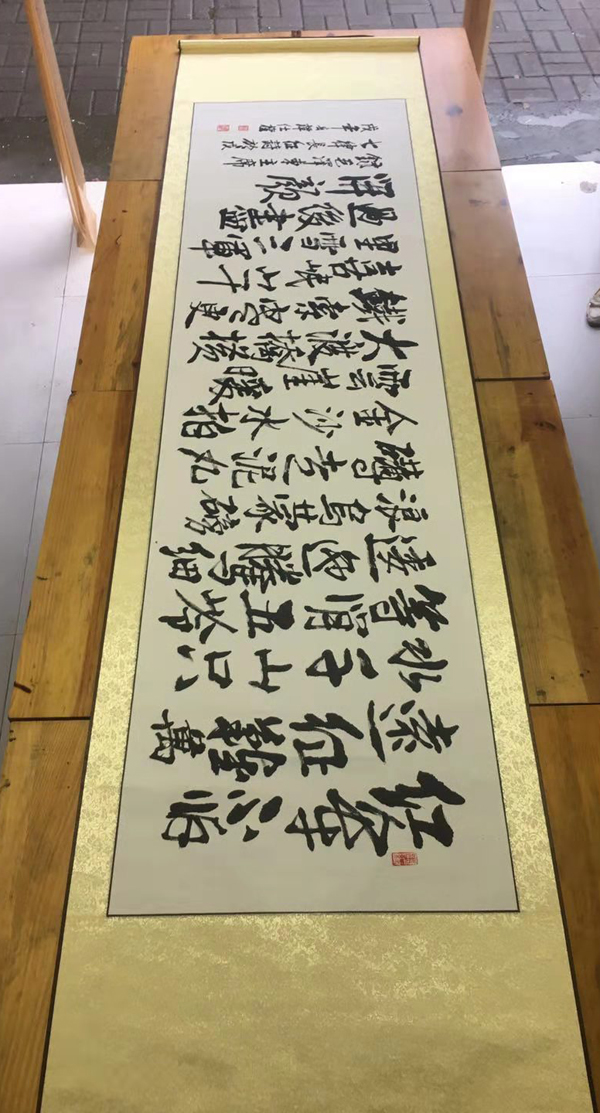 紅軍不怕
遠征難萬
水千山只
等閒五嶺
逶迤騰細
浪烏蒙磅
礴走泥丸
金沙水拍
雲崖暖
大渡橋橫
鐵索寒更
喜岷山千
里雪三軍
過後盡
開顏
錄毛澤東主席
七律長征
戌年